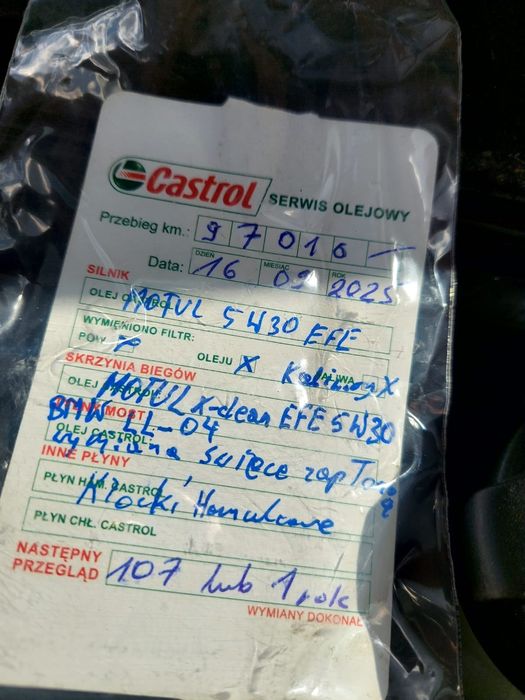 Castrol SERWIS OLEJOWY
Przebieg km.: 97010 -
DZIEŃ MIESIĄC ROK
Data: 16 09 2025
SILNIK
OLEJ CASTROL: MOTUL 5W30 EFE
WYMIENIONO FILTR:
POW. x OLEJU x PALIWA x
SKRZYNIA BIEGÓW
OLEJ CASTROL: MOTUL x-clean EFE 5W30
TYLNY MOST BMW LL-04
OLEJ CASTROL: wymiana świece zapłonowe
INNE PŁYNY
PŁYN HAM. CASTROL Klocki Hamulcowe
PŁYN CHŁ. CASTROL
NASTĘPNY
PRZEGLĄD 107 lub 1 rok
WYMIANY DOKONAŁ